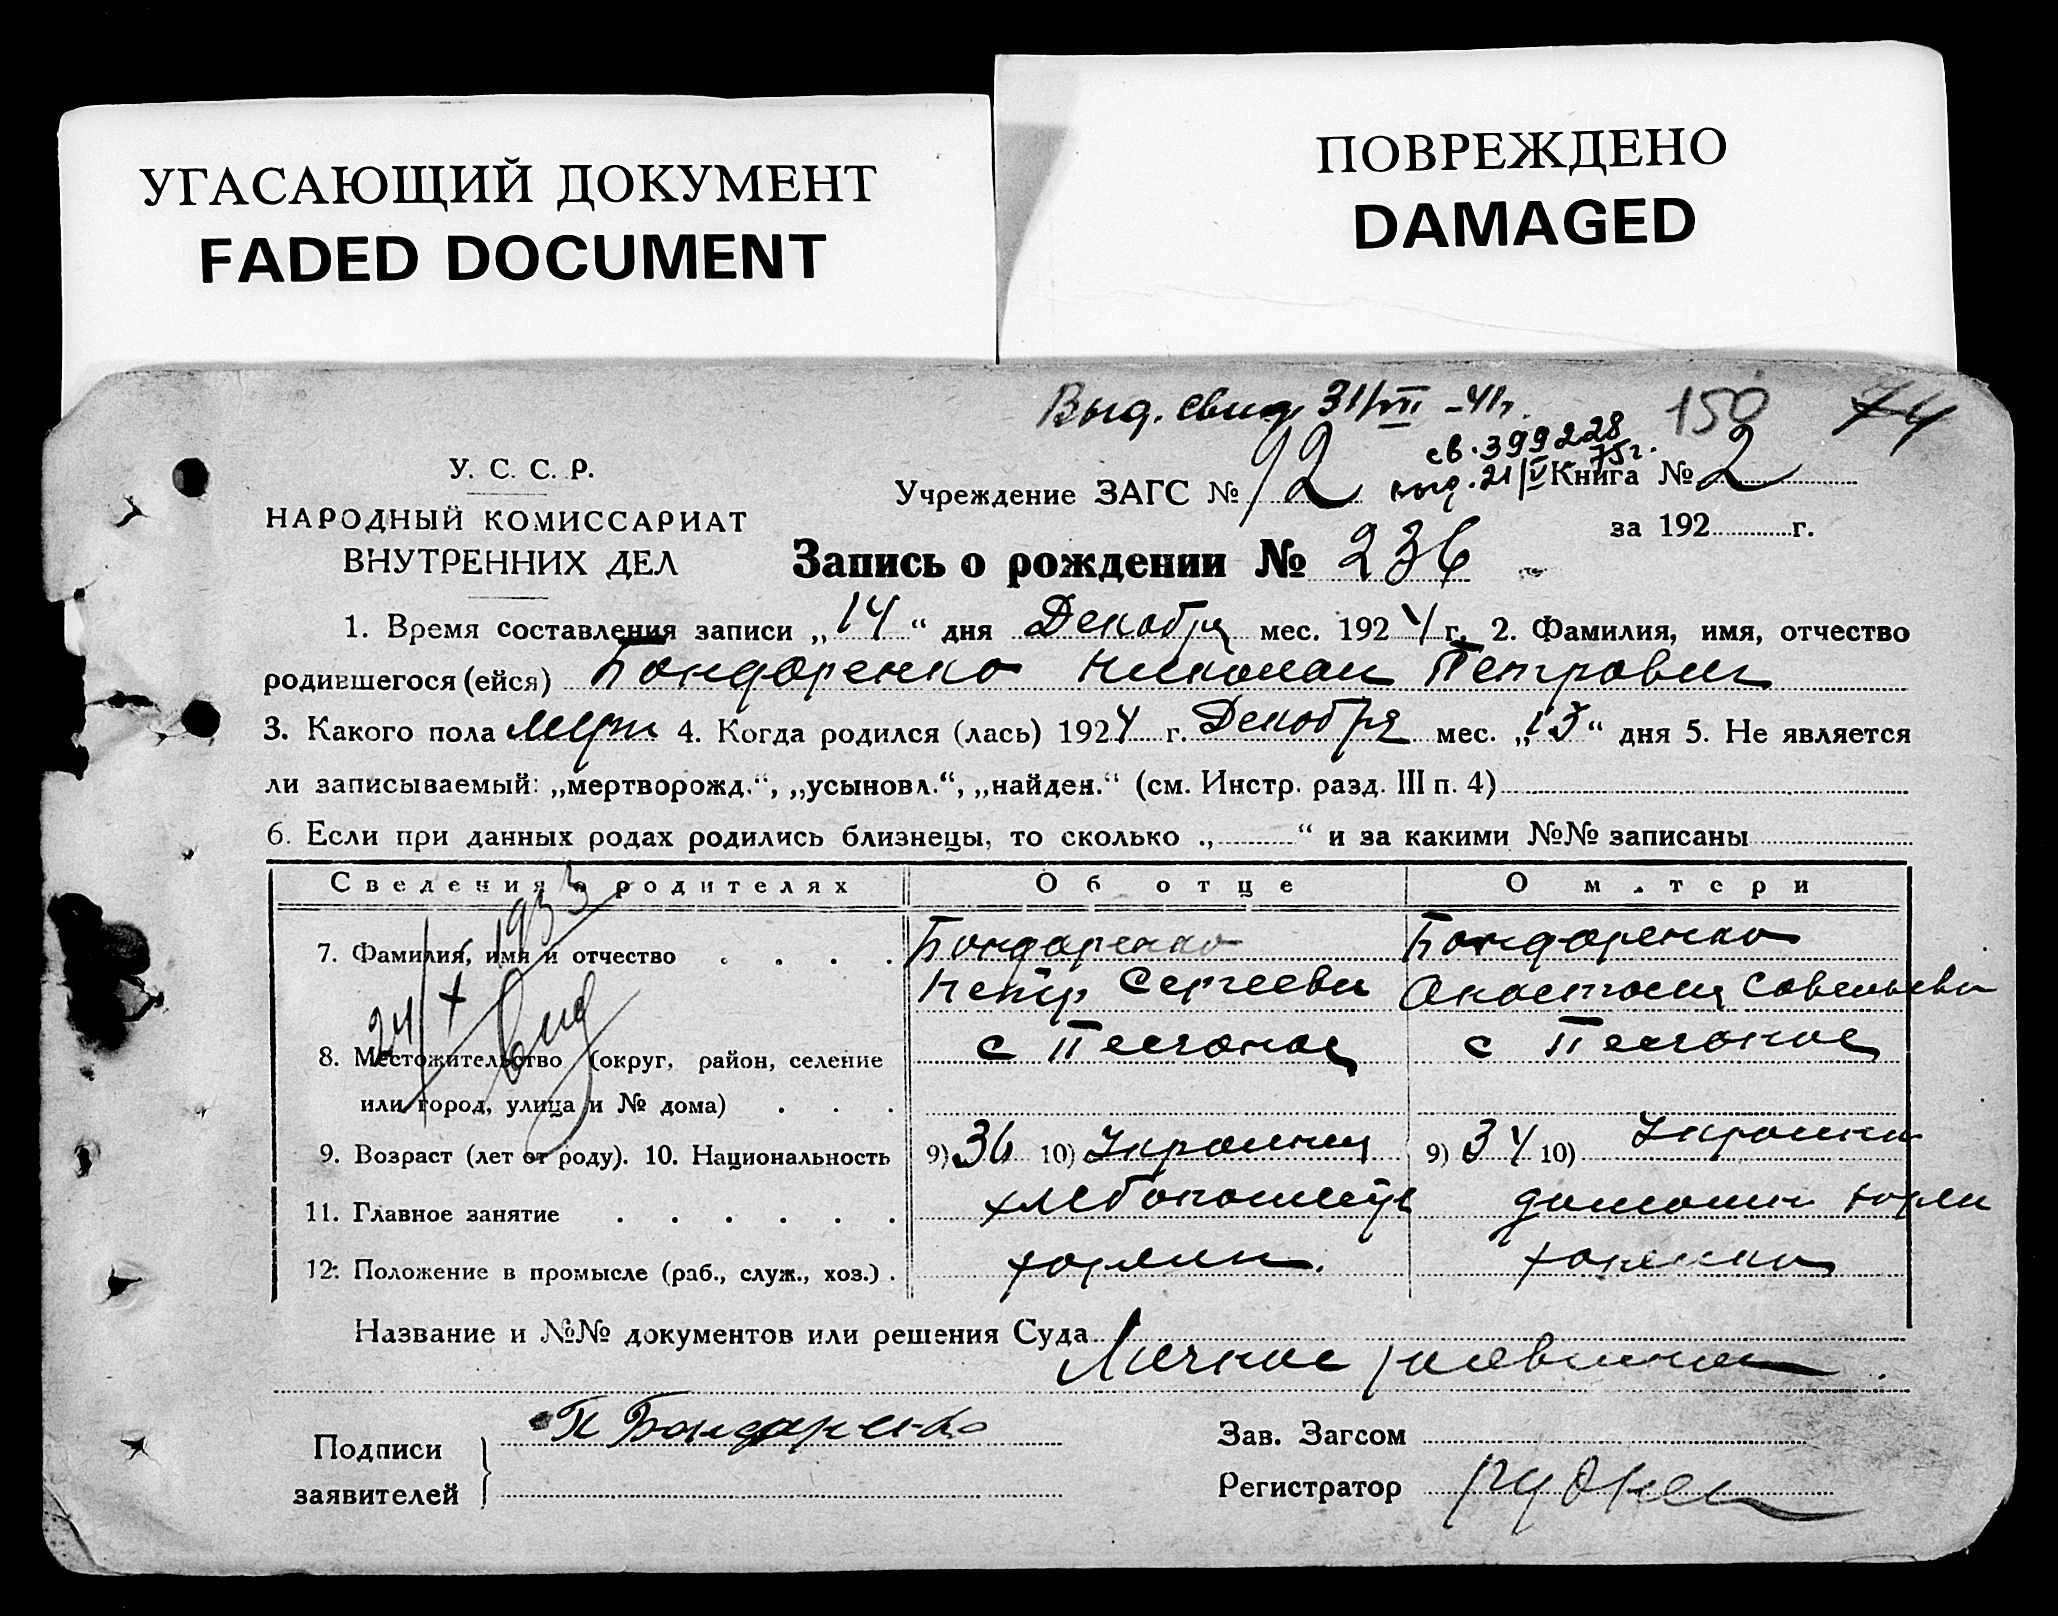 УГАСАЮЩИЙ ДОКУМЕНТ
FADED DOCUMENT
ПОВРЕЖДЕНО
DAMAGED
Выд. свид. 31/VII -41г. 150 74
св. 399228
У. С. С. Р.
НАРОДНЫЙ КОМИССАРИАТ
ВНУТРЕННИХ ДЕЛ
Учреждение ЗАГС № 92 выд. 21/V 75г. Книга № 2
за 192 г.
Запись о рождении № 236
1. Время составления записи „14“ дня Декабря мес. 1924 г. 2. Фамилия, имя, отчество
родившегося (ейся) Бондаренко Николаи Петрович
3. Какого пола муж 4. Когда родился (лась) 1924 г. Декабря мес. „13“ дня 5. Не является
ли записываемый: „мертворожд.“, „усыновл.“, „найден.“ (см. Инстр. разд. III п. 4)
6. Если при данных родах родились близнецы, то сколько „ “ и за какими №№ записаны
Сведения о родителях Об отце О матери
7. Фамилия, имя и отчество Бондаренко Бондаренко
Петр Сергееви Анастасия Савельевн
24/X 1933 Выд
8. Местожительство (округ, район, селение с Песчаное с Песчаное
или город, улица и № дома)
9. Возраст (лет от роду). 10. Национальность 9) 36 10) Украинец 9) 34 10) Украинка
11. Главное занятие хлебопашец домашн
12. Положение в промысле (раб., служ., хоз.) хозяин. хозяйка
Название и №№ документов или решения Суда
Личное
Подписи заявителей П Бондаренко
Зав. Загсом
Регистратор